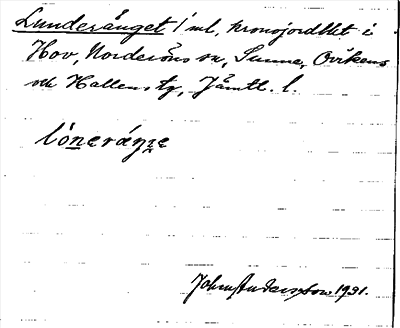 Lunderånget 1 ml, kronojordbht i
Hov, Norderöns sn, Sunne, Ovikens
och Hallens tg, Jämtl. l.
lóneráŋɛ
John Anderson 1931.